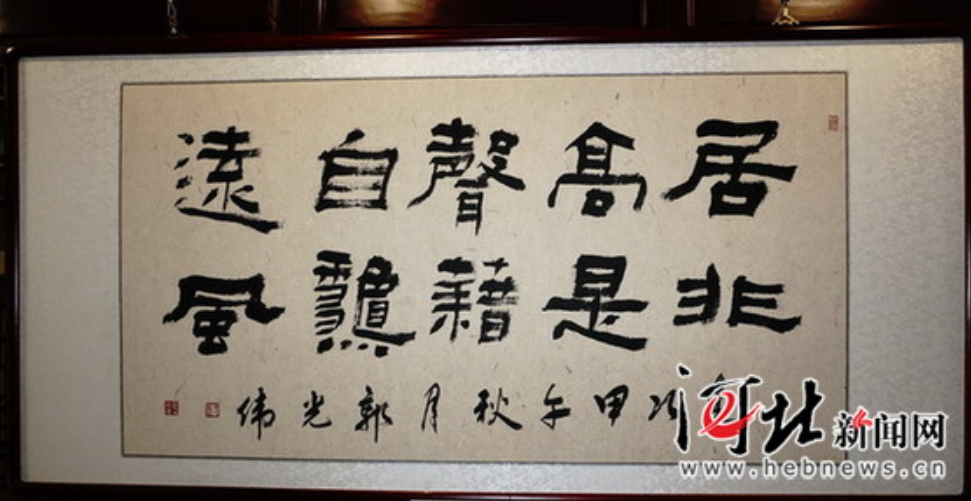 居高聲自遠
非是藉風
次甲午秋月郭光伟
河北新闻网
www.hebnews.cn